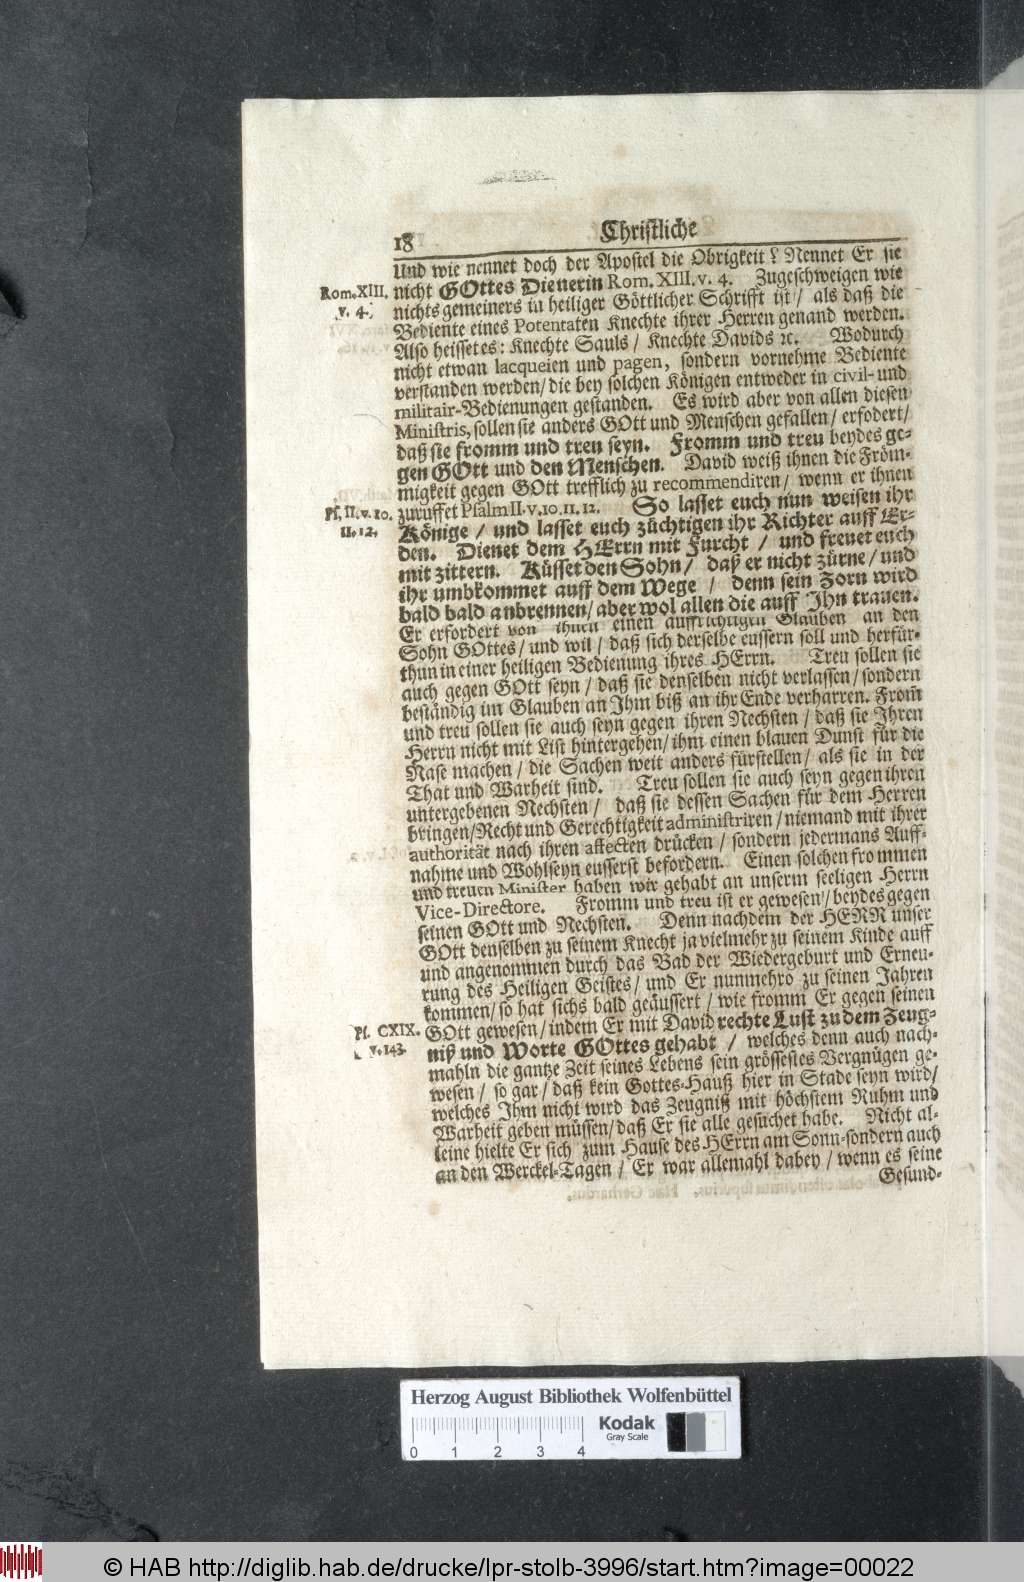 18
Christliche
Und wie nennet doch der Apostel die Obrigkeit? Nennet Er sie
Rom. XIII. v. 4.
nicht GOttes Dienerin Rom. XIII. v. 4. Zugeschweigen wie
nichts gemeiners in heiliger Göttlicher Schrifft ist / als daß die
Bediente eines Potentaten Knechte ihrer Herren genand werden.
Also heisset es: Knechte Sauls / Knechte Davids ꝛc. Wodurch
nicht etwan lacqueien und pagen, sondern vornehme Bediente
verstanden werden / die bey solchen Königen entweder in civil- und
militair-Bedienungen gestanden. Es wird aber von allen diesen
Ministris, sollen sie anders GOtt und Menschen gefallen / erfodert /
daß sie fromm und treu seyn. Fromm und treu beydes ge-
gen GOtt und den Menschen. David weiß ihnen die Fröm-
migkeit gegen GOtt trefflich zu recommendiren / wenn er ihnen
Ps. II. v. 10. 11. 12.
zuruffet Psalm II. v. 10. 11. 12. So lasset euch nun weisen ihr
Könige / und lasset euch züchtigen ihr Richter auff Er-
den. Dienet dem HErrn mit Furcht / und freuet euch
mit zittern. Küsset den Sohn / daß er nicht zürne / und
ihr umbkommet auff dem Wege / denn sein Zorn wird
bald bald anbrennen / aber wol allen die auff Ihn trauen.
Er erfordert von ihnen einen auffrichtigen Glauben an den
Sohn GOttes / und wil / daß sich derselbe eussern soll und herfür-
thun in einer heiligen Bedienung ihres HErrn. Treu sollen sie
auch gegen GOtt seyn / daß sie denselben nicht verlassen / sondern
beständig im Glauben an Ihm biß an ihr Ende verharren. From̃
und treu sollen sie auch seyn gegen ihren Nechsten / daß sie Ihren
Herrn nicht mit List hintergehen / ihm einen blauen Dunst für die
Nase machen / die Sachen weit anders fürstellen / als sie in der
That und Warheit sind. Treu sollen sie auch seyn gegen ihren
untergebenen Nechsten / daß sie dessen Sachen für dem Herren
bringen / Recht und Gerechtigkeit administriren / niemand mit ihrer
authorität nach ihren affecten drücken / sondern jedermans Auff-
nahme und Wohlseyn eusserst befordern. Einen solchen frommen
und treuen Minister haben wir gehabt an unserm seeligen Herrn
Vice-Directore. Fromm und treu ist er gewesen / beydes gegen
seinen GOtt und Nechsten. Denn nachdem der HERR unser
GOtt denselben zu seinem Knecht ja vielmehr zu seinem Kinde auff
und angenommen durch das Bad der Wiedergeburt und Erneu-
rung des Heiligen Geistes / und Er nunmehro zu seinen Jahren
kommen / so hat sichs bald geäussert / wie fromm Er gegen seinen
Ps. CXIX. v. 143.
GOtt gewesen / indem Er mit David rechte Lust zu dem Zeug-
niß und Worte GOttes gehabt / welches denn auch nach-
mahln die gantze Zeit seines Lebens sein grössestes Vergnügen ge-
wesen / so gar / daß kein Gottes-Hauß hier in Stade seyn wird /
welches Ihm nicht wird das Zeugniß mit höchstem Ruhm und
Warheit geben müssen / daß Er sie alle gesuchet habe. Nicht al-
leine hielte Er sich zum Hause des HErrn am Sonn- sondern auch
an den Werckel-Tagen / Er war allemahl dabey / wenn es seine
Gesund-
Herzog August Bibliothek Wolfenbüttel
Kodak
Gray Scale
0 1 2 3 4
© HAB http://diglib.hab.de/drucke/lpr-stolb-3996/start.htm?image=00022